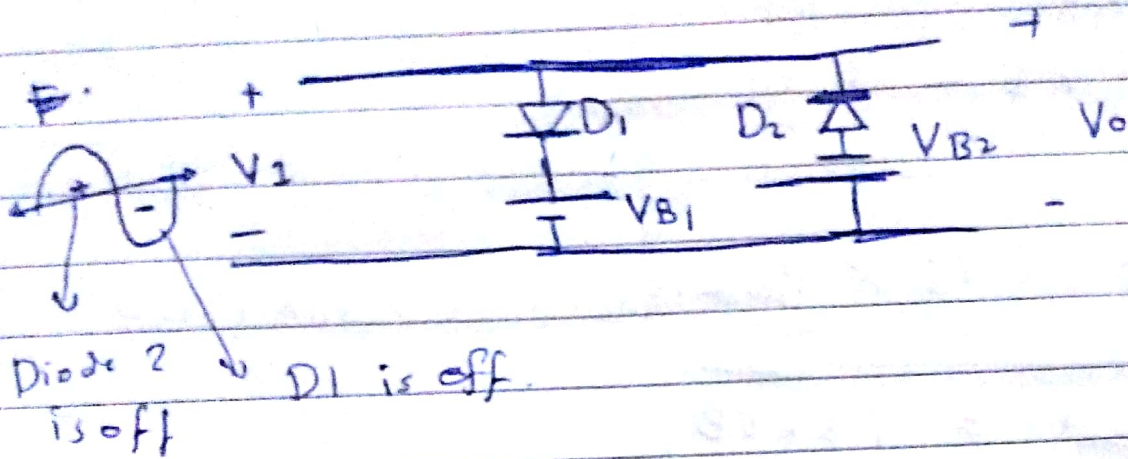 +
+ D1 D2 VB2 Vo
V1
+ -
- VB1 -
Diode 2
is off
D1 is off.